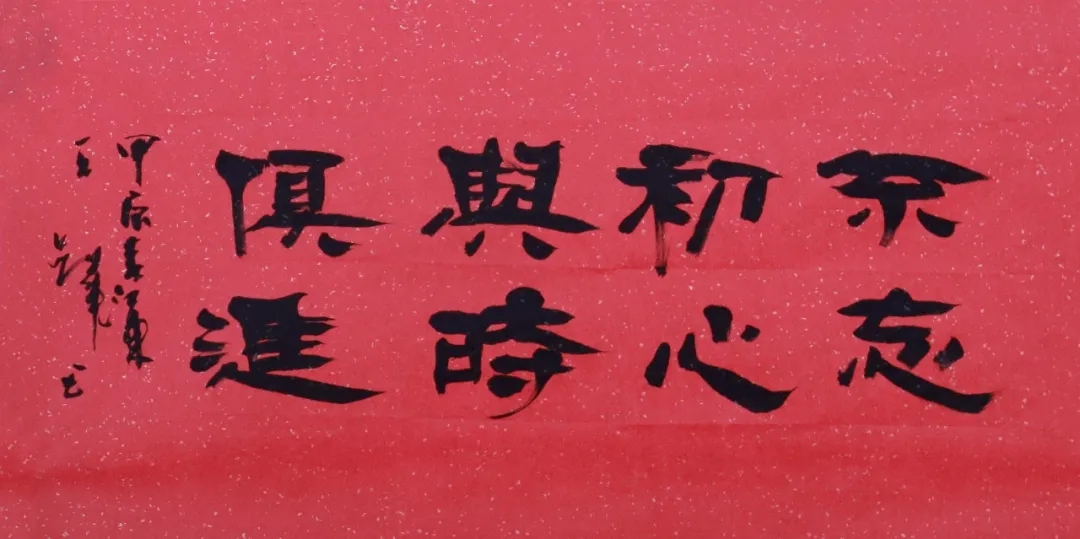 不忘
初心
與時
俱進
甲辰春
王